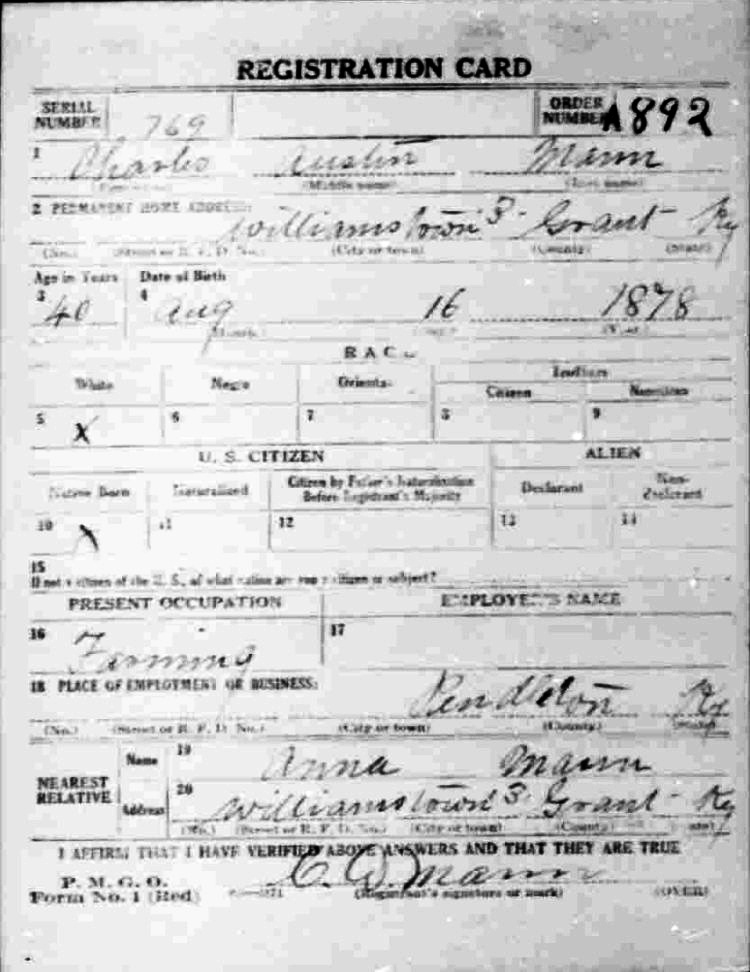 REGISTRATION CARD
SERIAL NUMBER 769 ORDER NUMBER A892
1 Charles Austin Mann
(First name) (Middle name) (Last name)
2 PERMANENT HOME ADDRESS:
Williamstown 3 Grant Ky
(No.) (Street or R. F. D. No.) (City or town) (County) (State)
Age in Years Date of Birth
3 40 4 Aug 16 1878
(Month) (Day) (Year)
RACE
White Negro Oriental Indian
Citizen Noncitizen
5 X 6 7 8 9
U. S. CITIZEN ALIEN
Native Born Naturalized Citizen by Father's Naturalization Before Registrant's Majority Declarant Non-Declarant
10 X 11 12 13 14
15
If not a citizen of the U. S., of what nation are you a citizen or subject?
PRESENT OCCUPATION EMPLOYER'S NAME
16 Farming 17
18 PLACE OF EMPLOYMENT OR BUSINESS:
Pendleton Ky
(No.) (Street or R. F. D. No.) (City or town) (County) (State)
NEAREST RELATIVE
Name 19 Anna Mann
Address 20 Williamstown 3 Grant Ky
(No.) (Street or R. F. D. No.) (City or town) (County) (State)
I AFFIRM THAT I HAVE VERIFIED ABOVE ANSWERS AND THAT THEY ARE TRUE
P. M. G. O.
Form No. 1 (Red) C. A. Mann
(Registrant's signature or mark) (OVER)